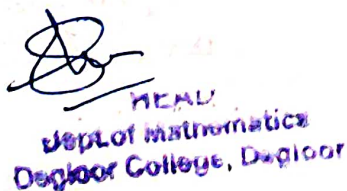 HEAD
Dept. of Mathematics
Degloor College, Degloor